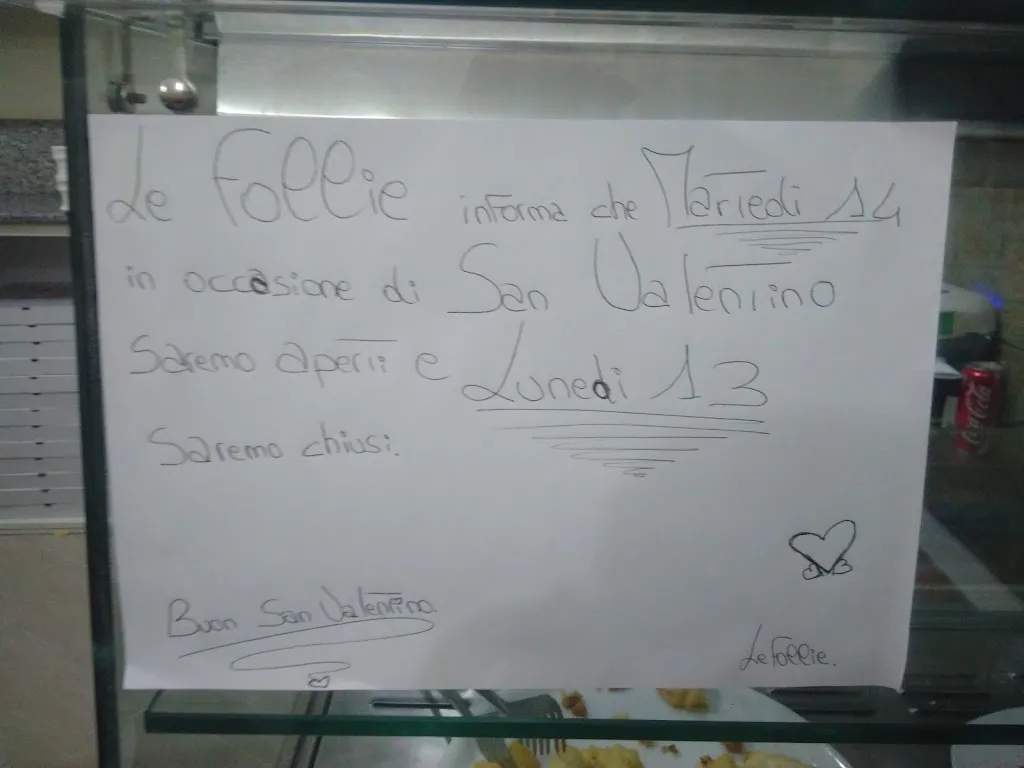 Le Follie informa che Martedi 14
in occasione di San Valentino
Saremo aperti e Lunedi 13
Saremo chiusi.
Buon San Valentino.
Le Follie.
Coca-Cola